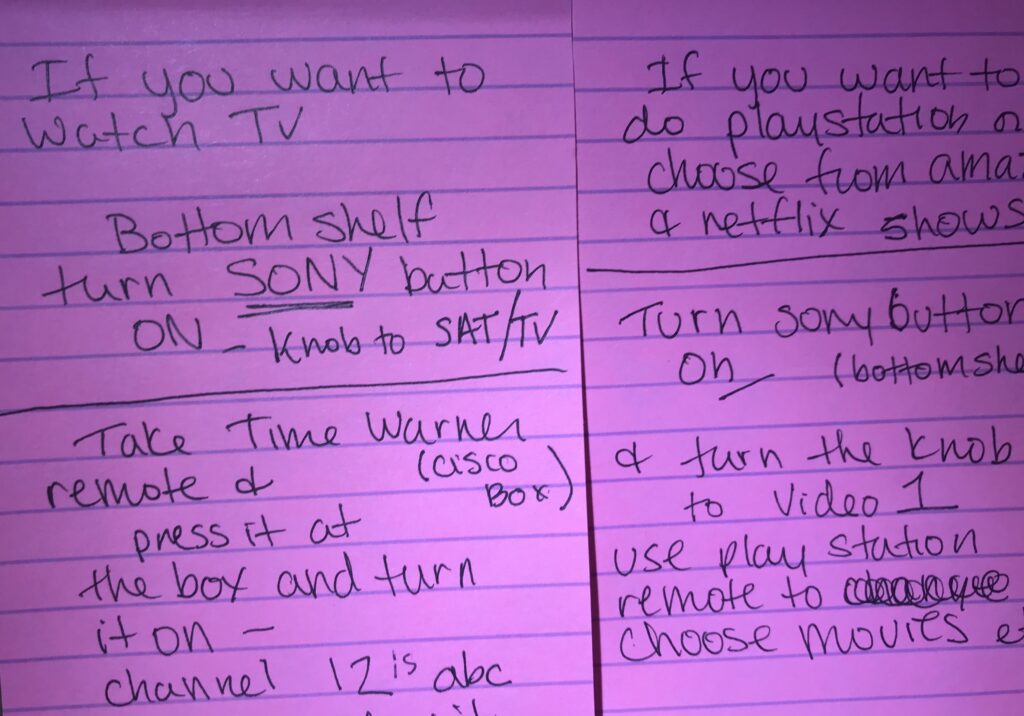 If you want to
watch TV
Bottom shelf
turn SONY button
ON - Knob to SAT/TV
Take Time Warner
remote & (cisco
Box)
press it at
the box and turn
it on -
channel 12 is abc
If you want to
do playstation
choose from
& netflix shows
Turn sony
On
& turn the knob
to Video 1
use play station
remote to
choose movies